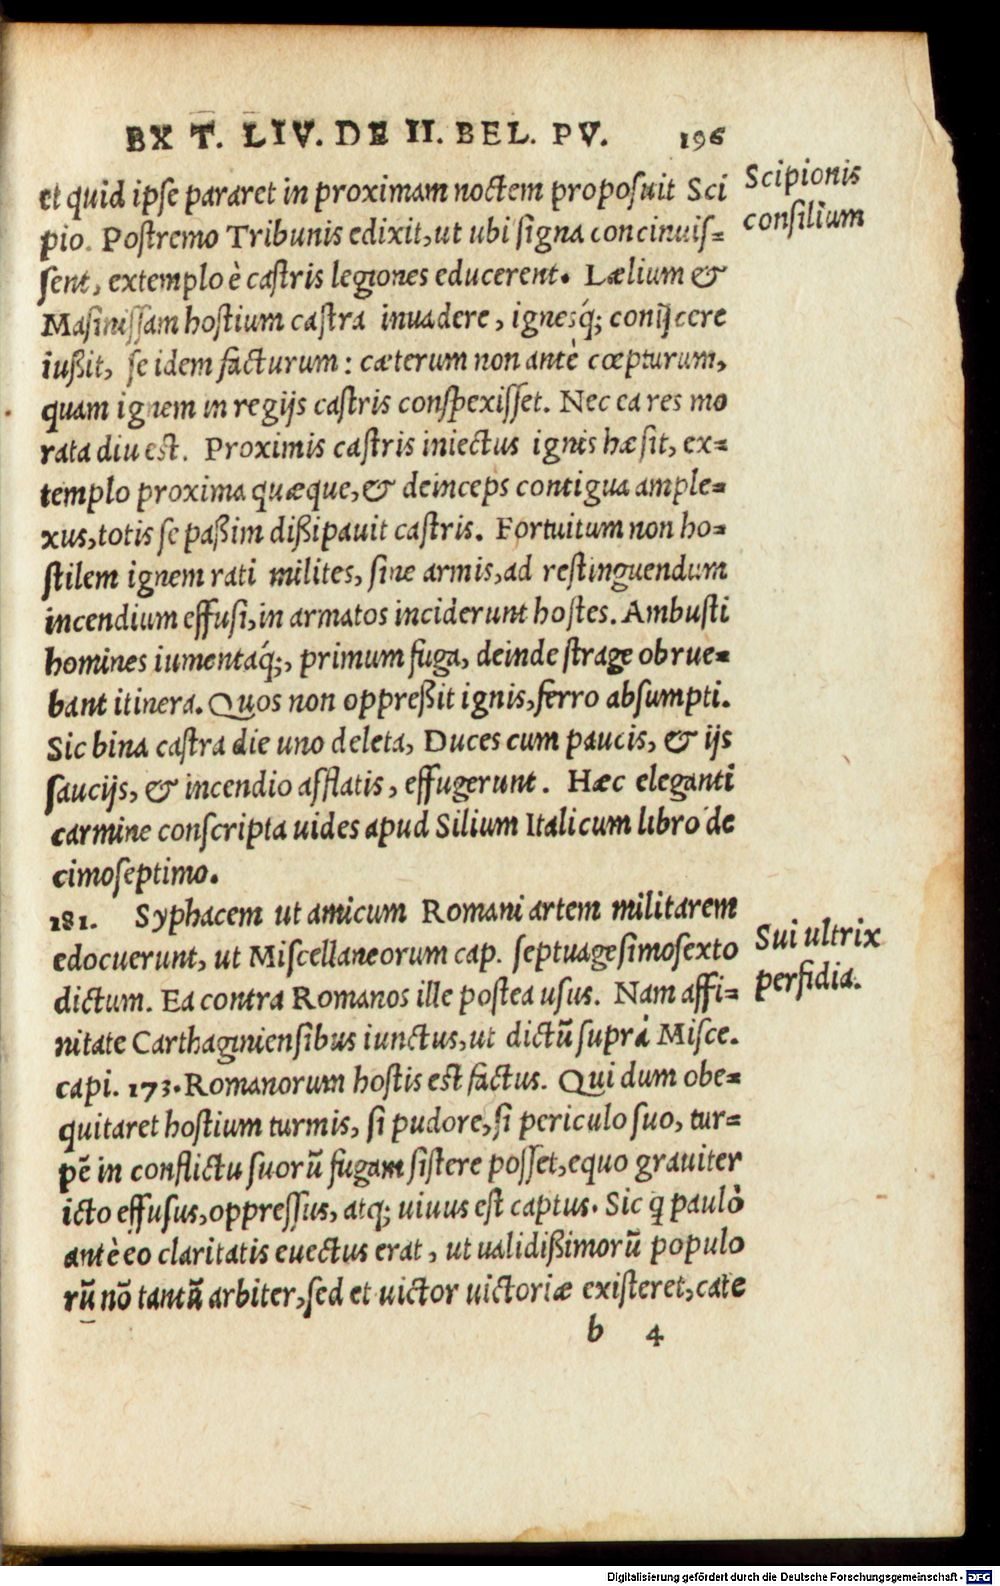 EX T. LIV. DE II. BEL. PV. 196
et quid ipse pararet in proximam noctem proposuit Sci
Scipionis
pio. Postremo Tribunis edixit, ut ubi signa concinuis=
consilium
sent, extemplo è castris legiones educerent. Lælium &
Masinissam hostium castra invadere, ignesq́; conijcere
iußit, se idem facturum: cæterum non antè cœpturum,
quam ignem in regijs castris conspexisset. Nec ea res mo
rata diu est. Proximis castris iniectus ignis hæsit, ex=
templo proxima quæque, & deinceps contigua ample=
xus, totis se paßim dißipavit castris. Fortuitum non ho=
stilem ignem rati milites, sine armis, ad restinguendum
incendium effusi, in armatos inciderunt hostes. Ambusti
homines iumentaq́;, primum fuga, deinde strage obrue=
bant itinera. Quos non oppreßit ignis, ferro absumpti.
Sic bina castra die uno deleta, Duces cum paucis, & ijs
saucijs, & incendio afflatis, effugerunt. Hæc eleganti
carmine conscripta uides apud Silium Italicum libro de
cimoseptimo.
181. Syphacem ut amicum Romani artem militarem
edocuerunt, ut Miscellaneorum cap. septuagesimosexto
Sui ultrix
dictum. Ea contra Romanos ille postea usus. Nam affi=
perfidia.
nitate Carthaginiensibus iunctus, ut dictũ suprà Misce.
capi. 173. Romanorum hostis est factus. Qui dum obe=
quitaret hostium turmis, si pudore, si periculo suo, tur=
pẽ in conflictu suorũ fugam sistere posset, equo graviter
icto effusus, oppressus, atq; uiuus est captus. Sic q̃ paulò
antè eo claritatis euectus erat, ut ualidißimorũ populo
rũ nõ tantũ arbiter, sed et uictor uictoriæ existeret, cate
b 4
Digitalisierung gefördert durch die Deutsche Forschungsgemeinschaft - DFG